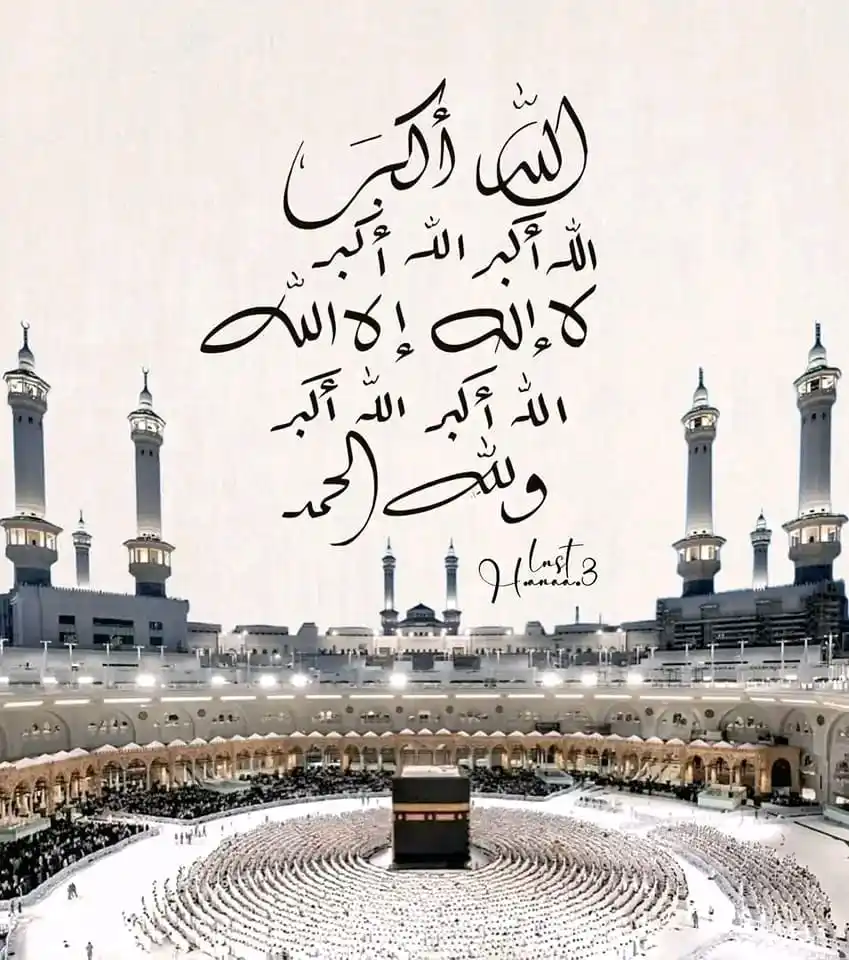 الله أكبر
الله أكبر الله أكبر
لا إله إلا الله
الله أكبر الله أكبر
ولله الحمد